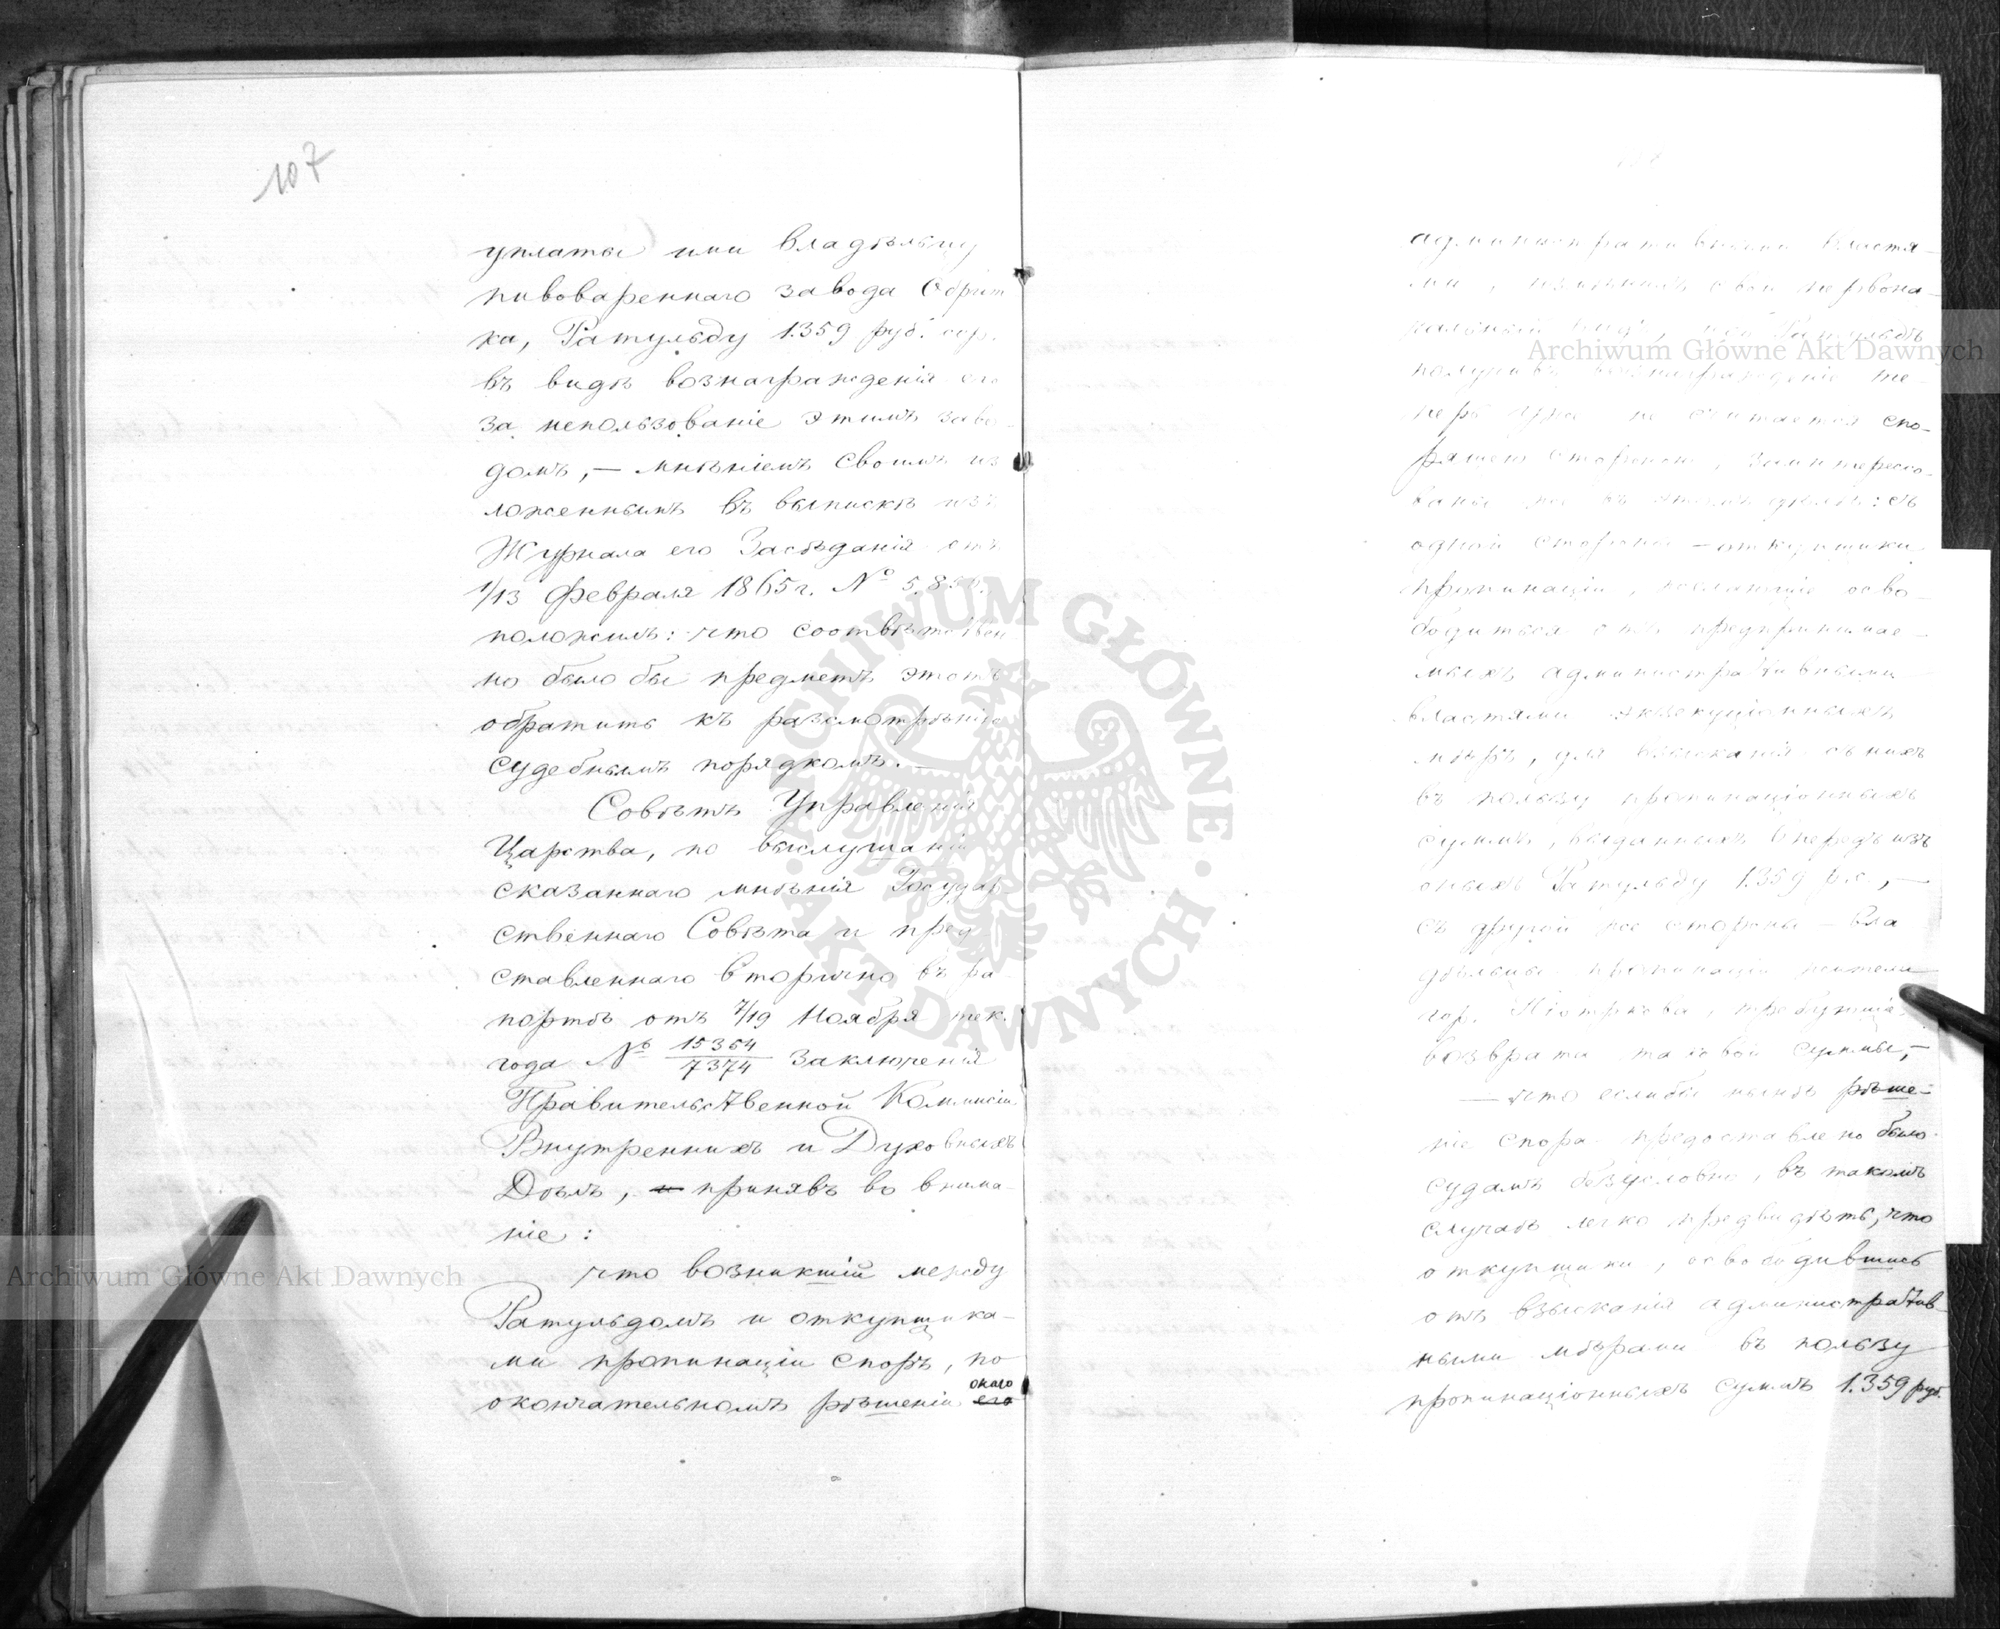 107
уплаты ими владѣльцу
пивовареннаго завода Обрит
ка, Ратульду 1.359 руб. сер.
въ видѣ вознагражденія его
за непользованіе этимъ заво
домъ, — мнѣніемъ своимъ из
ложеннымъ въ выпискѣ изъ
Журнала его Засѣданія отъ
1/13 Февраля 1865 г. №
положилъ: что соотвѣтствен
но было бы предметъ этотъ
обратить къ разсмотрѣнію
судебнымъ порядкомъ. —
Совѣтъ Управленія
Царства, по выслушаніи
сказаннаго мнѣнія Государ
ственнаго Совѣта и пред
ставленнаго вторично въ ра
портѣ отъ 7/19 Ноября тек.
года № 15354/7374 заключенія
Правительственной Коммисіи
Внутреннихъ и Духовныхъ
Дѣлъ, принявъ во внима-
ніе:
что возникшій между
Ратульдомъ и откупщика-
ми пропинаціи споръ, по
окончательномъ рѣшеніи его онаго
административными властя-
ми, первона-
чальный видъ, ибо Ратульдъ
получивъ вознагражденіе те-
перь уже не считается спо-
рящею стороною, заинтересо-
ваны же въ этомъ дѣлѣ: съ
одной стороны — откупщики
пропинаціи, желающіе осво-
бодиться отъ предпринимае-
мыхъ административными
властями экзекуціонныхъ
мѣръ, для взысканія съ нихъ
въ пользу пропинаціонныхъ
суммъ, выданныхъ впередъ изъ
оныхъ Ратульду 1.359 р.с., —
съ другой же стороны — вла
дѣльцы пропинаціи жители
гор. Піотркова, требующіе
возврата таковой суммы, —
— что еслибы нынѣ рѣше-
ніе спора предоставлено было
судамъ безусловно, въ такомъ
случаѣ легко предвидѣть, что
откупщики, освободившись
отъ взысканія административ-
ными мѣрами въ пользу
пропинаціонныхъ суммъ 1.359 руб.
Archiwum Główne Akt Dawnych
Archiwum Główne Akt Dawnych
ARCHIWUM GŁÓWNE · AKT DAWNYCH ·